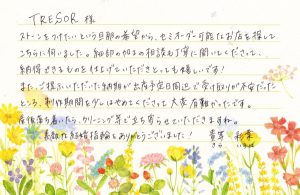 TRESOR 様
ストーンをつけたいという旦那の希望から、セミオーダー可能なお店を探して
こちらに伺いました。細部の好みの相談も丁寧に聞いてくださって、
納得できるものを仕上げていただきとっても嬉しいです！
また、ご提示いただいた納期が出産予定日間近で受け取りが不安だった
ところ、制作期間をずらしはやめてくださって大変有難かったです。
産後落ち着いたら、クリーニング等で立ち寄らせていただきますね。
素敵な結婚指輪をありがとうございました！